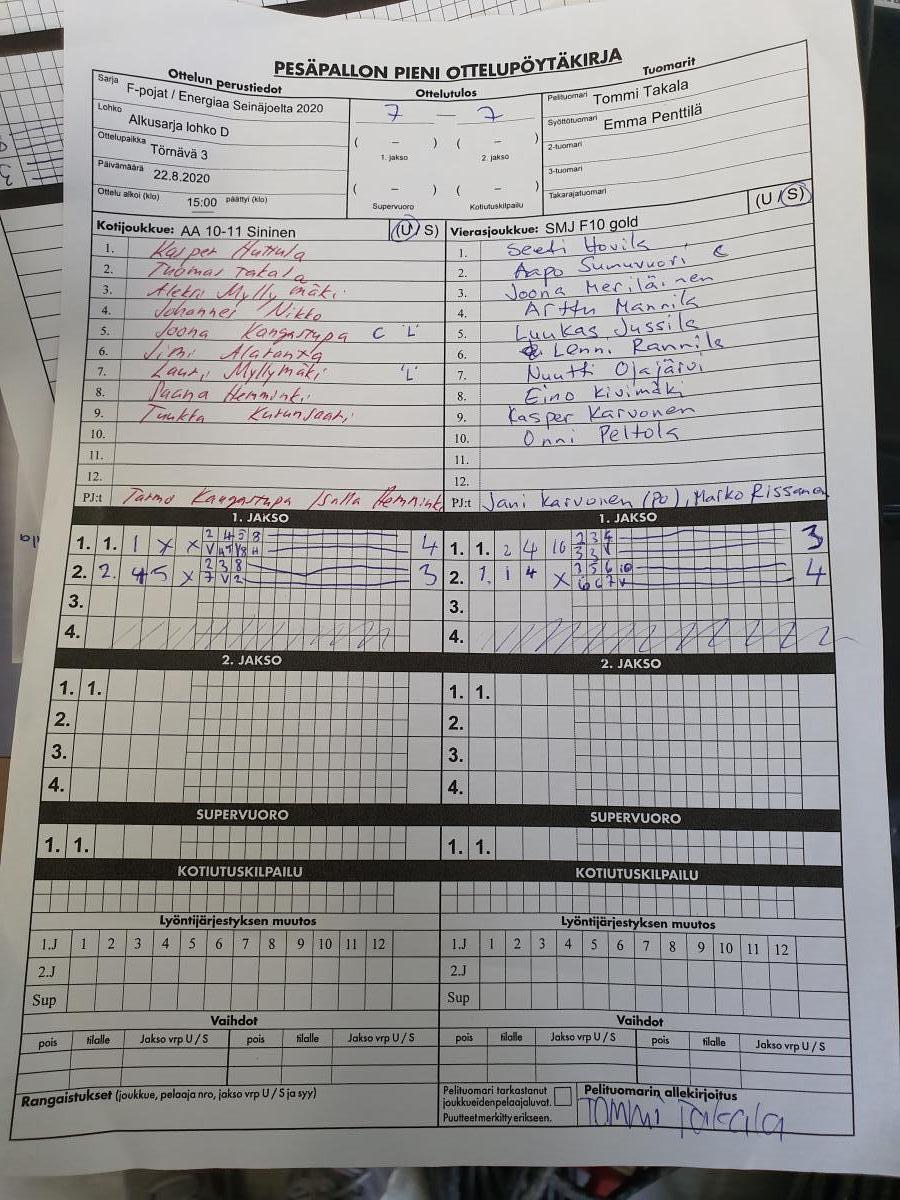 PESÄPALLON PIENI OTTELUPÖYTÄKIRJA
Ottelun perustiedot
Ottelutulos
Tuomarit
Sarja F-pojat / Energiaa Seinäjoelta 2020
Lohko Alkusarja lohko D
Ottelupaikka Törnävä 3
Päivämäärä 22.8.2020
Ottelu alkoi (klo) 15:00 päättyi (klo)
7 — 7
( – ) ( – )
1. jakso 2. jakso
( – ) ( – )
Supervuoro Kotiutuskilpailu
Pelituomari Tommi Takala
Syöttötuomari Emma Penttilä
2-tuomari
3-tuomari
Takarajatuomari
Kotijoukkue: AA 10-11 Sininen (U / S)
1. Kasper Huttula
2. Tuomas Takala
3. Aleksi Myllymäki
4. Johannes Nikko
5. Joona Kangastupa C 'L'
6. Jimi Alaranta
7. Lauri Myllymäki 'L'
8. Daana Hemminki
9. Tuukka
10.
11.
12.
PJ:t Tarmo Kangastupa / Salla Hemminki
Vierasjoukkue: SMJ F10 gold (U / S)
1. Seeti Hovila
2. Aapo Sumuvuori C
3. Joona Meriläinen
4. Arttu Mannila
5. Luukas Jussila
6. Lenni Rannila
7. Nuutti Ojajärvi
8. Eino Kivimäki
9. Kasper Karvonen
10. Onni Peltola
11.
12.
PJ:t Jani Karvonen (PO), Marko Rissanen
1. JAKSO 1. JAKSO
1. 1. 1 X X 2 4 5 8 4
2. 2. 4 5 X 2 3 8 3
7 V 2
3.
4.
1. 1. 2 4 10 2 3 4 3
3 3 V
2. 1. 1 4 X 3 5 6 10 4
6 6 7 V
3.
4.
2. JAKSO 2. JAKSO
1. 1. 1. 1.
2. 2.
3. 3.
4. 4.
SUPERVUORO SUPERVUORO
1. 1. 1. 1.
KOTIUTUSKILPAILU KOTIUTUSKILPAILU
Lyöntijärjestyksen muutos Lyöntijärjestyksen muutos
1.J 1 2 3 4 5 6 7 8 9 10 11 12 1.J 1 2 3 4 5 6 7 8 9 10 11 12
2.J 2.J
Sup Sup
Vaihdot Vaihdot
pois tilalle Jakso vrp U / S pois tilalle Jakso vrp U / S pois tilalle Jakso vrp U / S pois tilalle Jakso vrp U / S
Rangaistukset (joukkue, pelaaja nro, jakso vrp U / S ja syy)
Pelituomari tarkastanut
joukkueidenpelaajaluvat.
Puutteetmerkittyerikseen.
Pelituomarin allekirjoitus
Tommi Takala